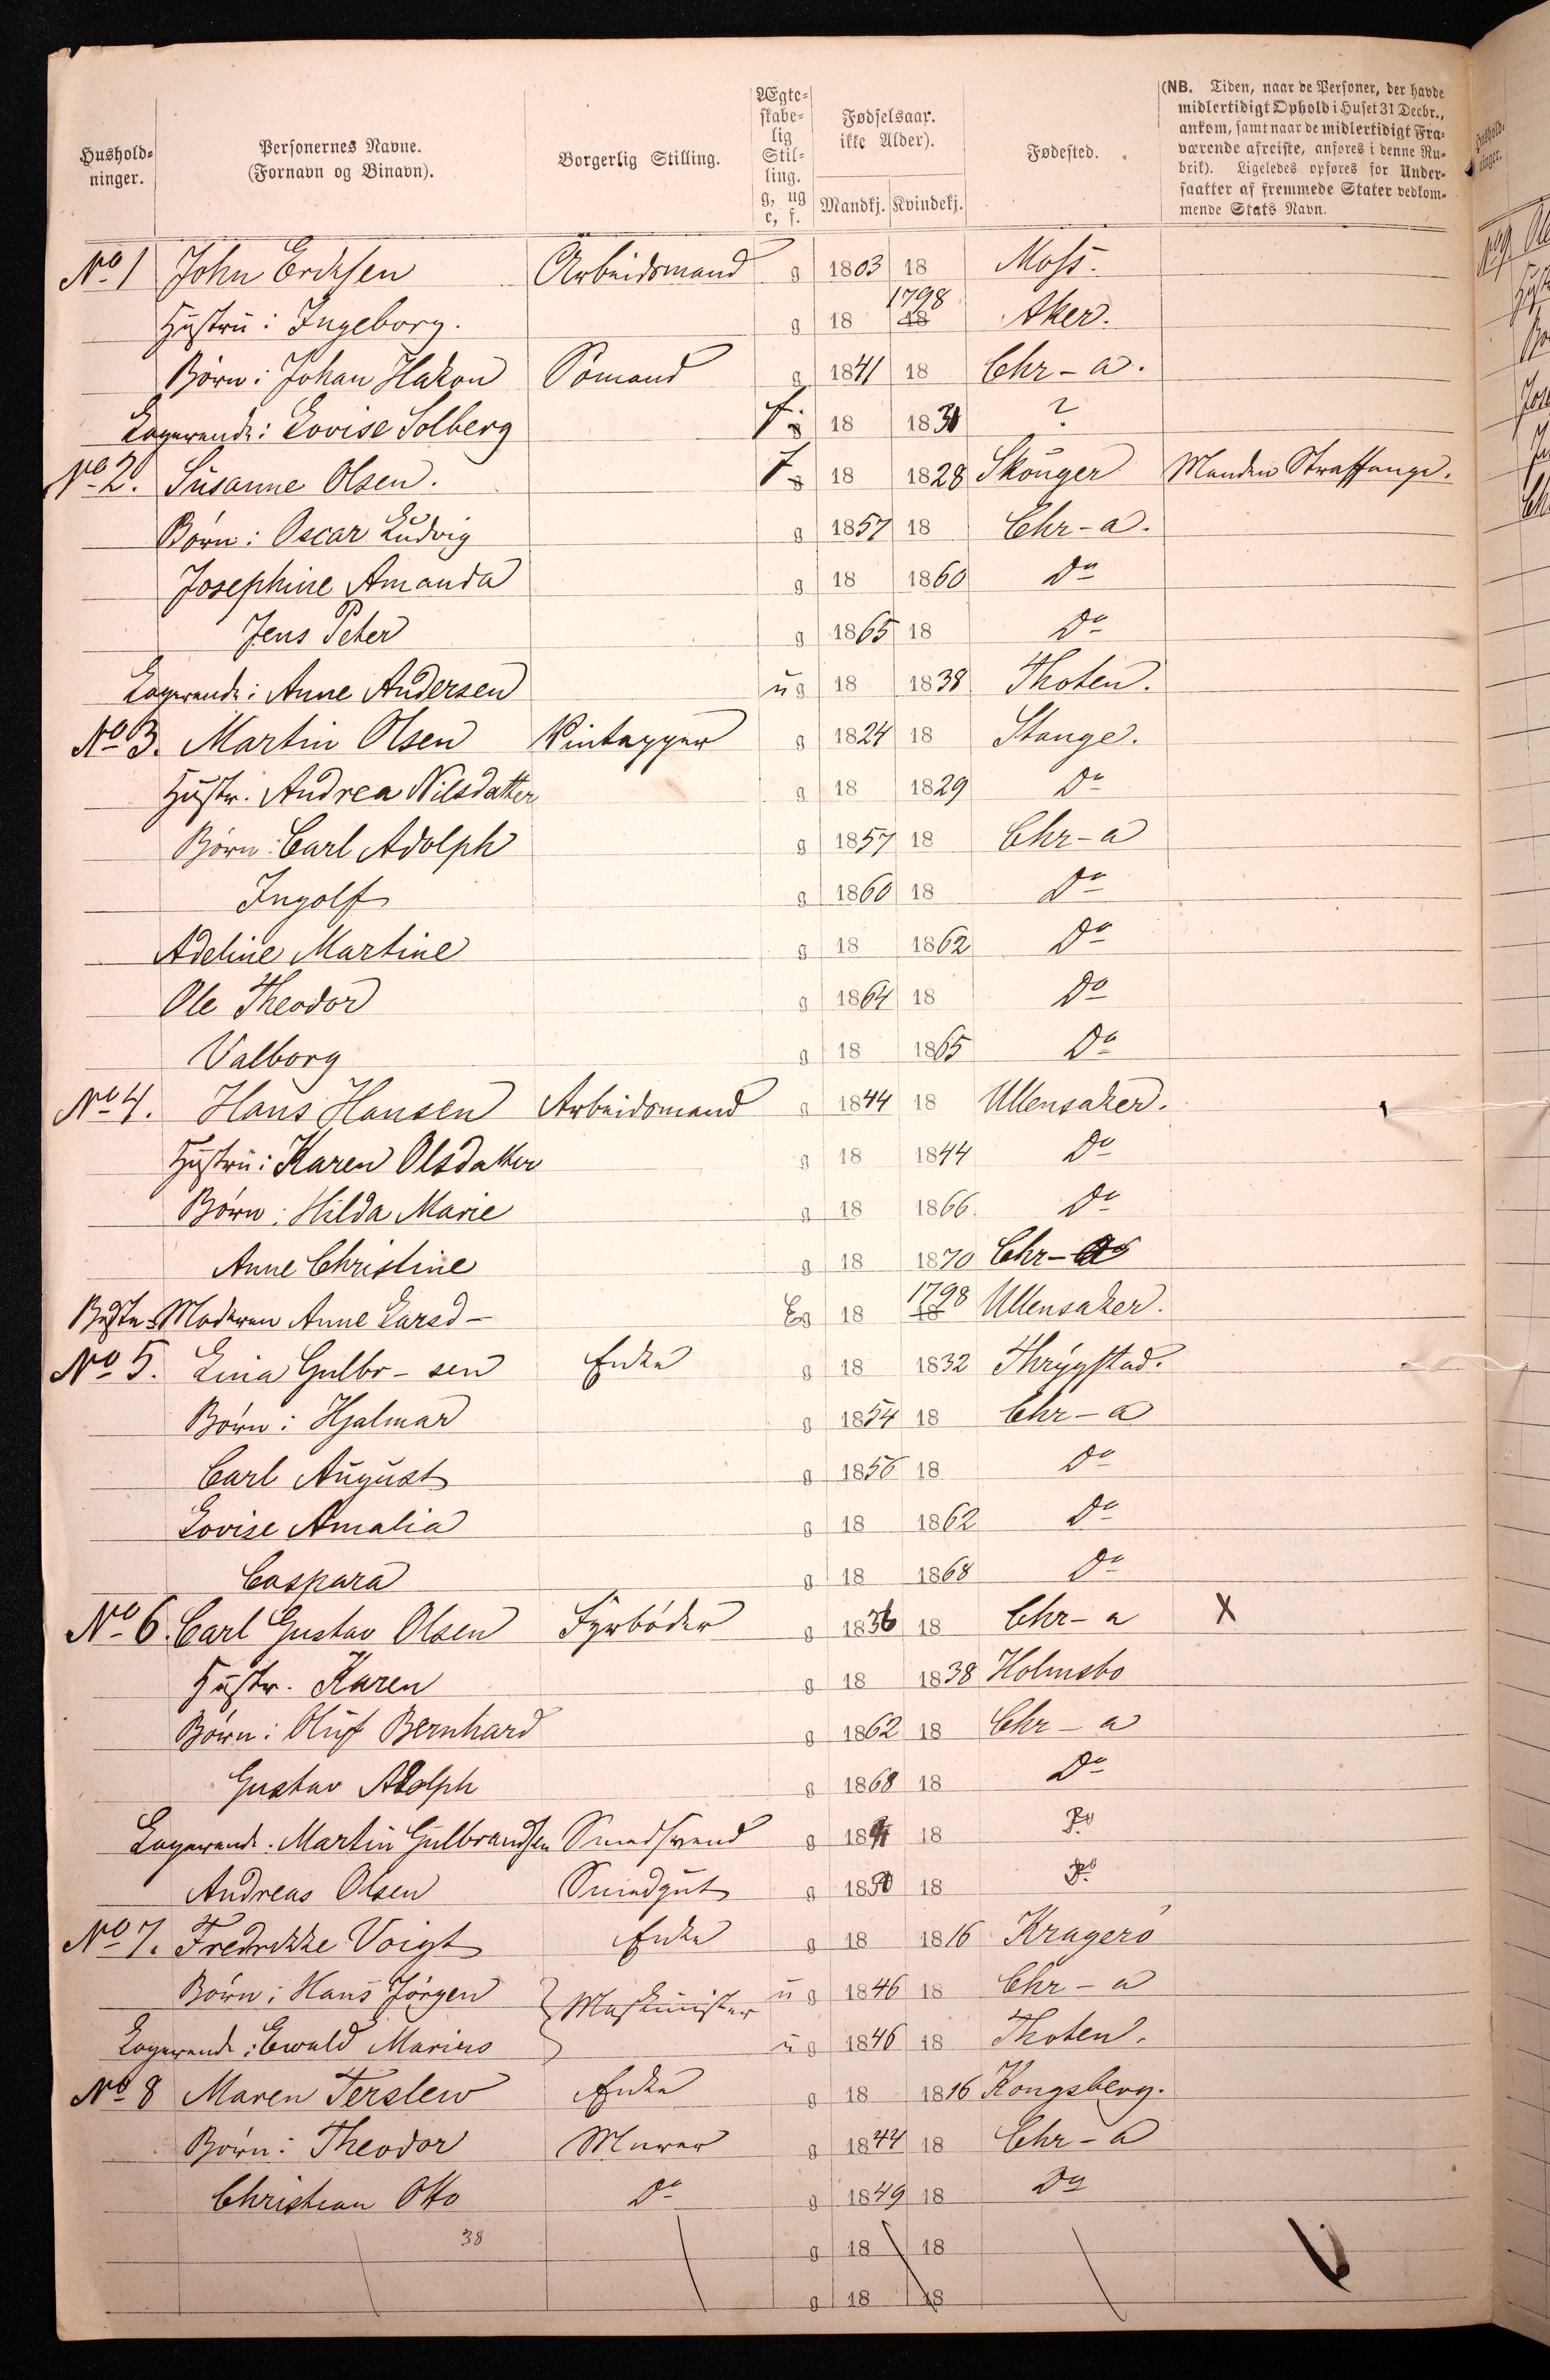 Hushold-ninger. Personernes Navne. (Fornavn og Binavn). Borgerlig Stilling. Ægte-skabe-lig Stil-ling. g, ug e, f. Fødselsaar. ikke Alder). Mandkj. Kvindekj. Fødested. (NB. Tiden, naar de Personer, der havde midlertidigt Ophold i Huset 31 Decbr., ankom, samt naar de midlertidigt Fra-værende afreiste, anføres i denne Ru-brik). Ligeledes opføres for Under-saatter af fremmede Stater vedkom-mende Stats Navn.
No 1 John Erichsen Arbeidsmand g 1803 18 Moss.
Hustru: Ingeborg. g 18 1798 Aker.
Børn: Johan Hakon Sømand g 1841 18 Chr-a.
Logerende: Lovise Solberg f. 18 1831 ?
No 2. Susanne Olsen. f 18 1828 Skouger Manden Straffange.
Børn: Oscar Ludvig g 1857 18 Chr-a.
Josephine Amanda g 18 1860 Do
Jens Peter g 1865 18 Do
Logerende: Anne Andersen ug 18 1838 Thoten.
No 3. Martin Olsen Vintapper g 1824 18 Stange.
Hustr. Andrea Nilsdatter g 18 1829 Do
Børn: Carl Adolph g 1857 18 Chr-a
Ingolf g 1860 18 Do
Adeline Martine g 18 1862 Do
Ole Theodor g 1864 18 Do
Valborg g 18 1865 Do
No 4. Hans Hansen Arbeidsmand g 1844 18 Ullensaker.
Hustru: Karen Olsdatter g 18 1844 Do
Børn: Hilda Marie g 18 1866. Do
Anne Christine g 18 1870 Chr-a
Moderen Anne Larsd- E g 18 1798 Ullensaker.
No 5. Lina Gulbr-sen Enke g 18 1832 Thrygstad.
Børn: Hjalmar g 1854 18 Chr-a
Carl August g 1856 18 Do
Lovise Amalia g 18 1862 Do
Caspara g 18 1868 Do
No 6. Carl Gustav Olsen Fyrbøder g 1836 18 Chr-a X
Hustr. Karen g 18 1838 Holmsbo
Børn: Oluf Bernhard g 1862 18 Chr-a
Gustav Adolph g 1868 18 Do
Logerende. Martin Gulbrandsen Smedsvend g 18 18 Do
Andreas Olsen Smedgut g 1850 18 Do
No 7. Fredrikke Voigt Enke g 18 1816 Kragerø
Børn: Hans Jørgen Maskinister ug 1846 18 Chr-a
Logerende: Ewald Marius ug 1846 18 Thoten.
No 8 Maren Terslew Enke g 18 1816 Kongsberg.
Børn: Theodor Murer g 1844 18 Chr-a
Christian Otto Do g 1849 18 Do
38 g 18 18
g 18 18